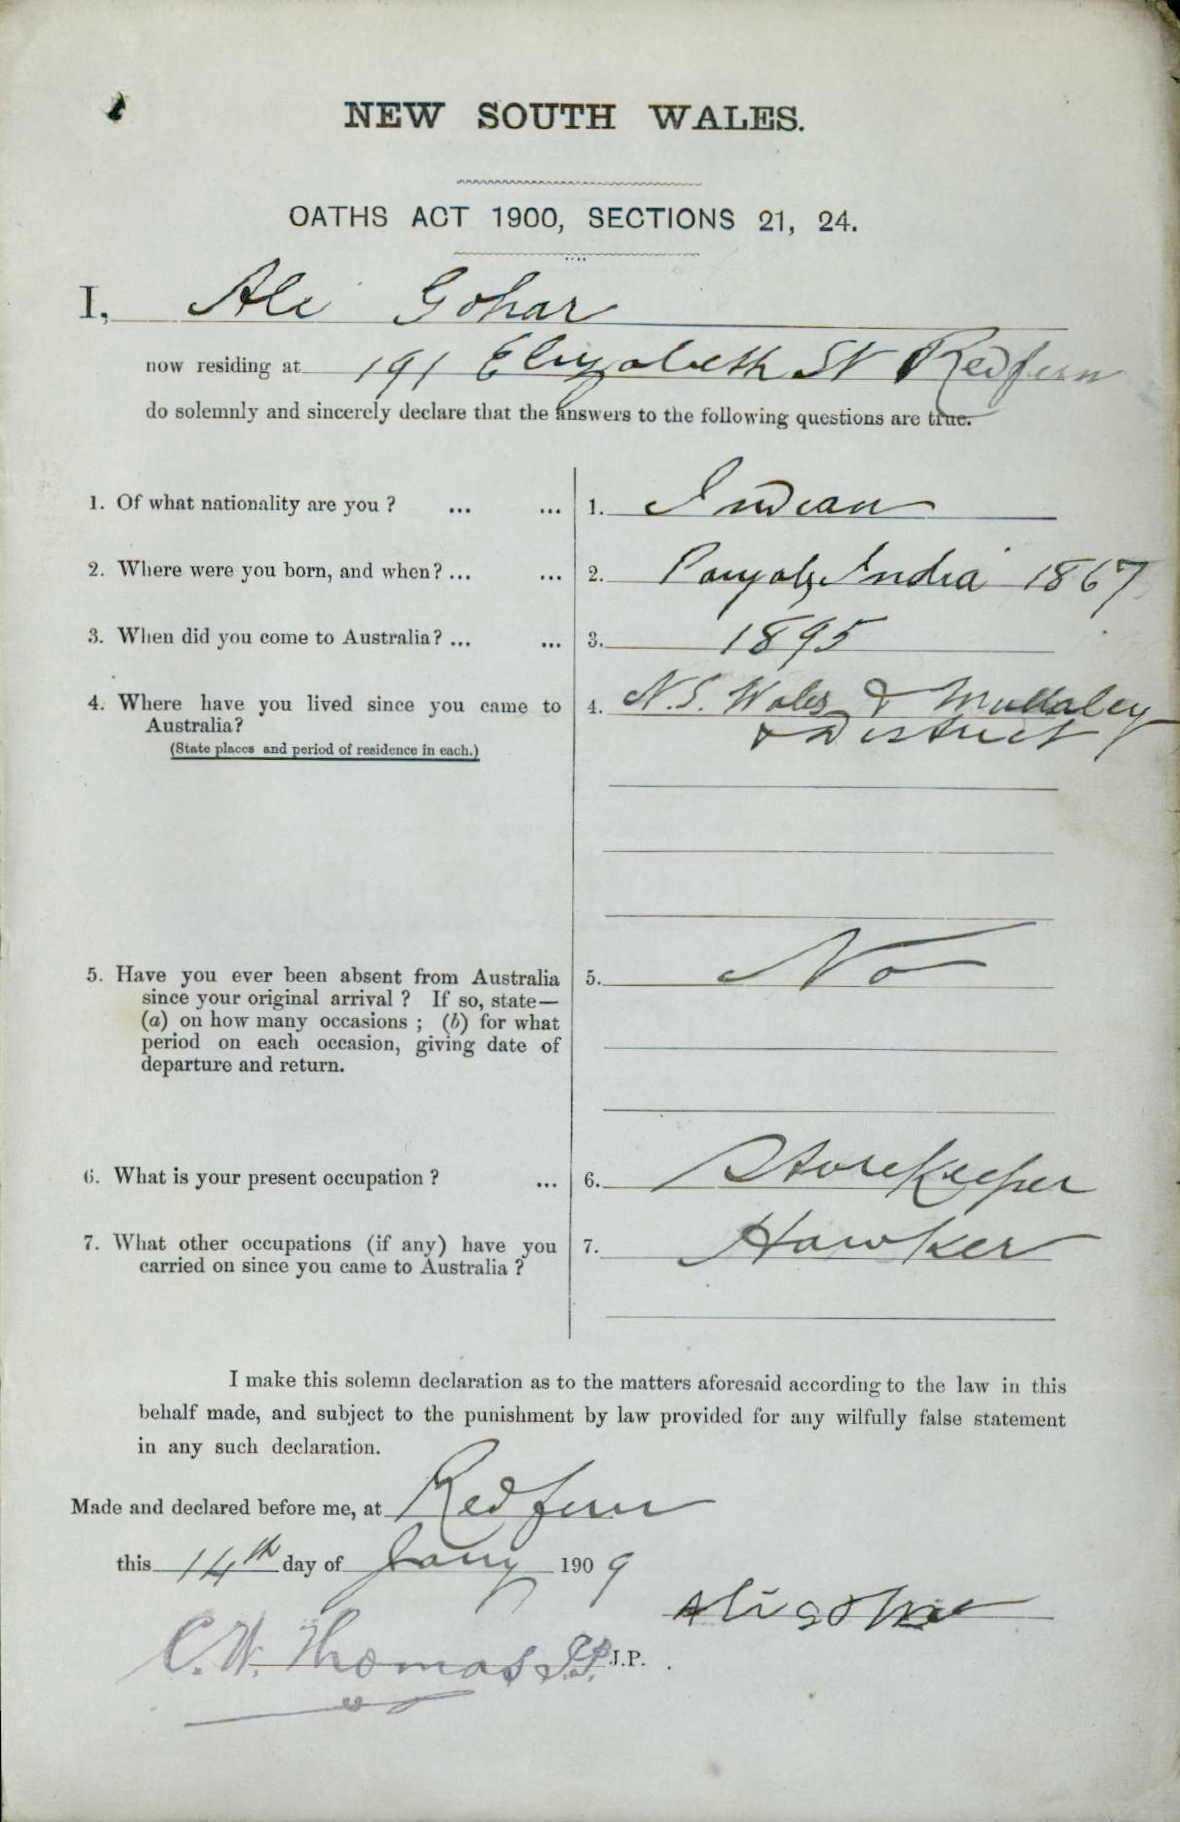 NEW SOUTH WALES.
OATHS ACT 1900, SECTIONS 21, 24.
I, Ali Gohar
now residing at 191 Elizabeth St Redfern
do solemnly and sincerely declare that the answers to the following questions are true.
1. Of what nationality are you ? ... ... 1. Indian
2. Where were you born, and when? ... ... 2. Panjab, India 1867
3. When did you come to Australia? ... ... 3. 1895
4. Where have you lived since you came to 4. N.S. Wales & Mullaley
Australia? & District
(State places and period of residence in each.)
5. Have you ever been absent from Australia 5. No
since your original arrival ? If so, state—
(a) on how many occasions ; (b) for what
period on each occasion, giving date of
departure and return.
6. What is your present occupation ? ... 6. Storekeeper
7. What other occupations (if any) have you 7. Hawker
carried on since you came to Australia ?
I make this solemn declaration as to the matters aforesaid according to the law in this
behalf made, and subject to the punishment by law provided for any wilfully false statement
in any such declaration.
Made and declared before me, at Redfern
this 14th day of Jany 1909
Ali
C. W. Thomas J.P. J.P.